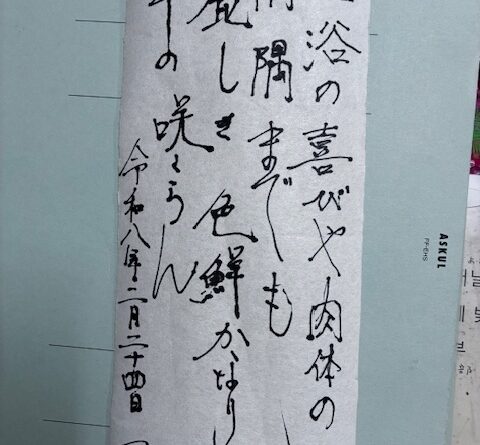 浴の喜びや肉体の
隅までも
しき色鮮かなり
の咲くらん
令和八年二月二十四日
ASKUL